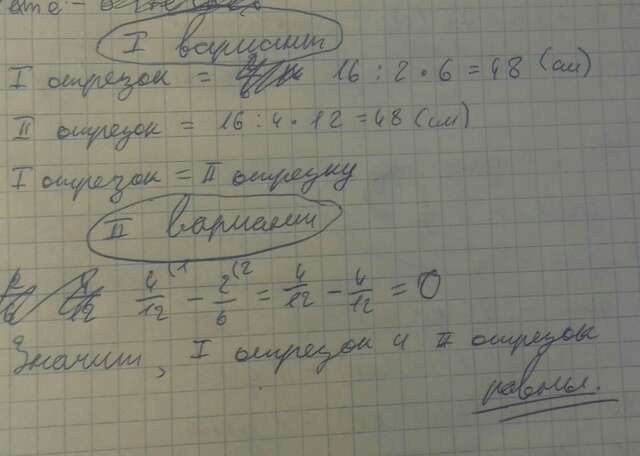 I вариант
I отрезок = 16 : 2 • 6 = 48 (см)
II отрезок = 16 : 4 • 12 = 48 (см)
I отрезок = II отрезку
II вариант
4/12 (1 - 2/6 (2 = 4/12 - 4/12 = 0
Значит, I отрезок и II отрезок
равны.